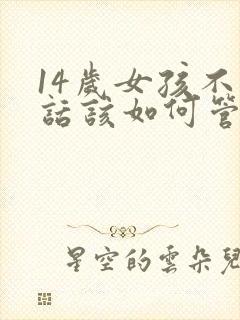 14歲女孩不
話該如何管
星空的雲朵兒